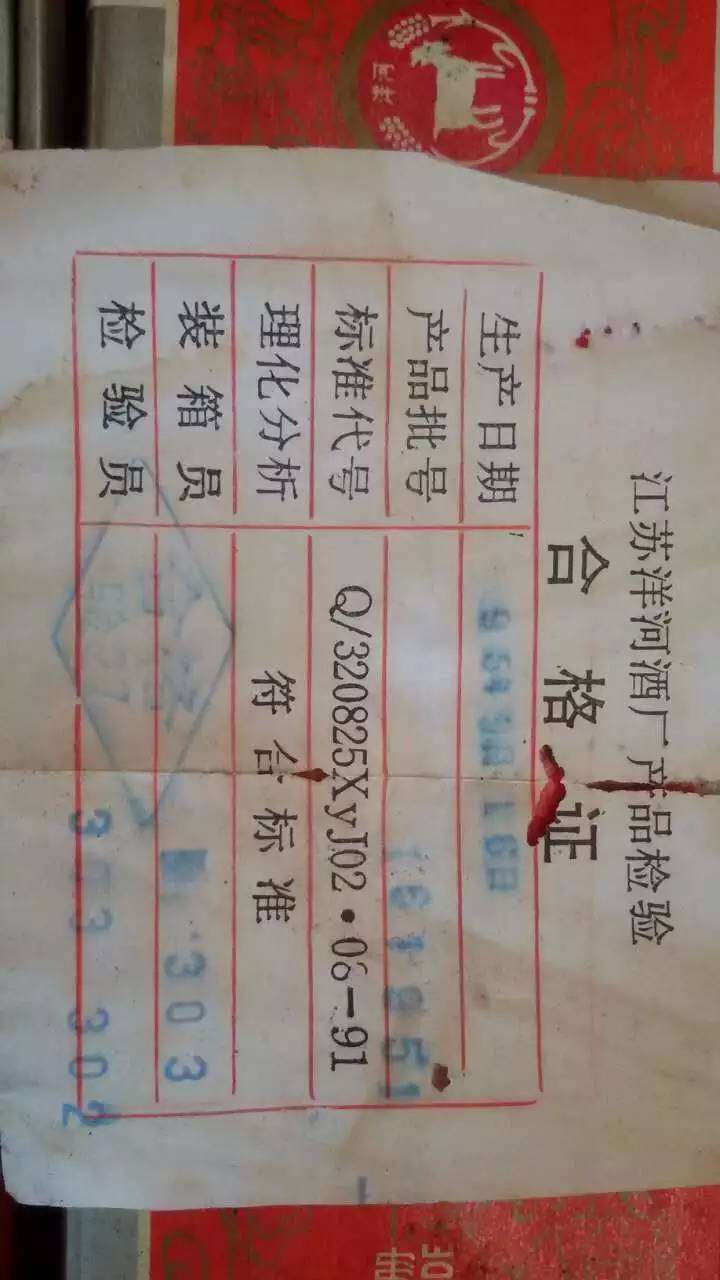 洋河
江苏洋河酒厂产品检验
合格证
生产日期
产品批号
标准代号 Q/320825XyJ02·06-91
理化分析 符合标准
装箱员 303
检验员 303 302